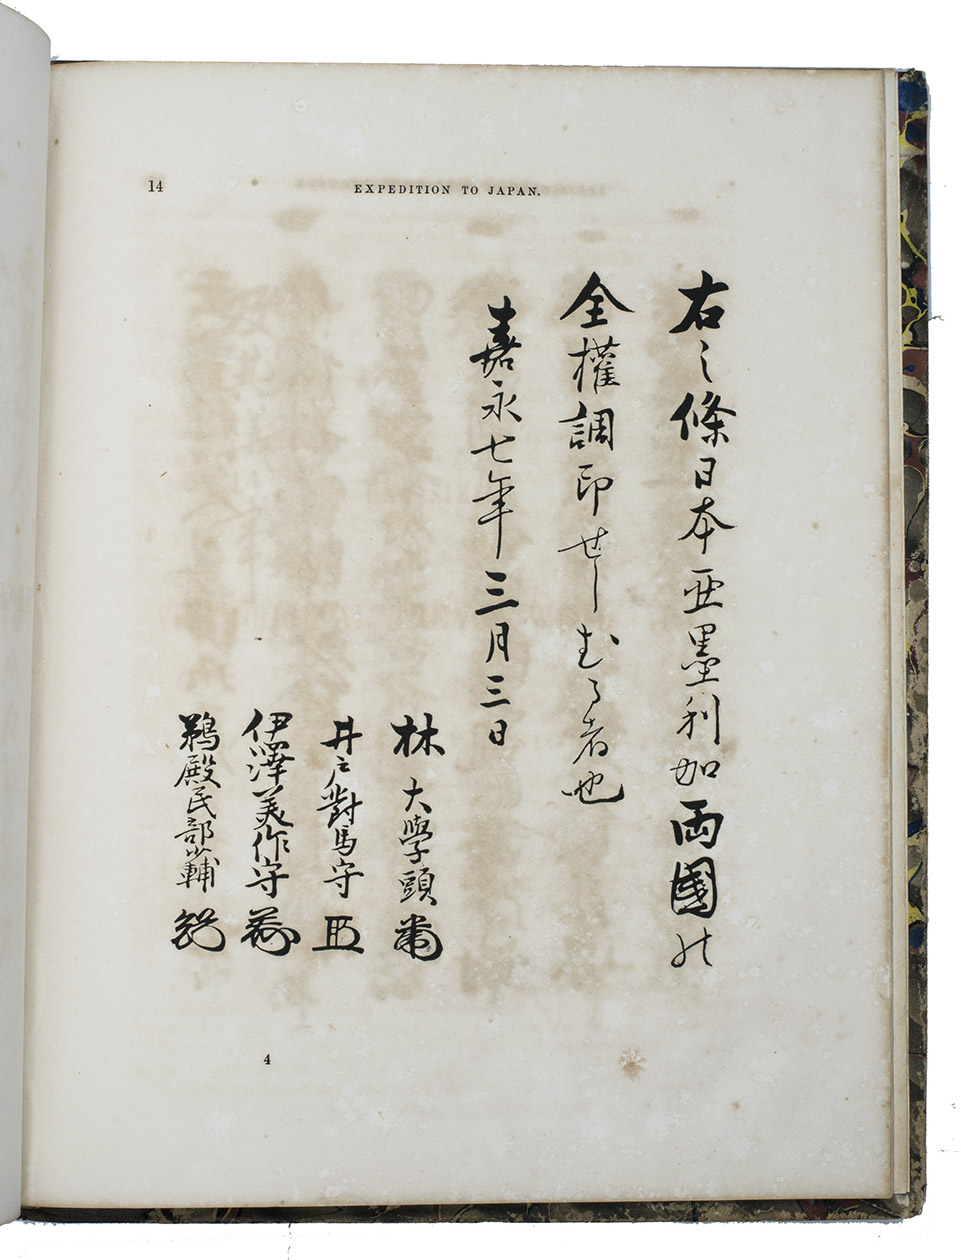 14
EXPEDITION TO JAPAN.
右之條日本亜墨利加両國の
全權調印せしむる者也
嘉永七年三月三日
林大學頭
井戸對馬守
伊澤美作守
鵜殿民部少輔
4